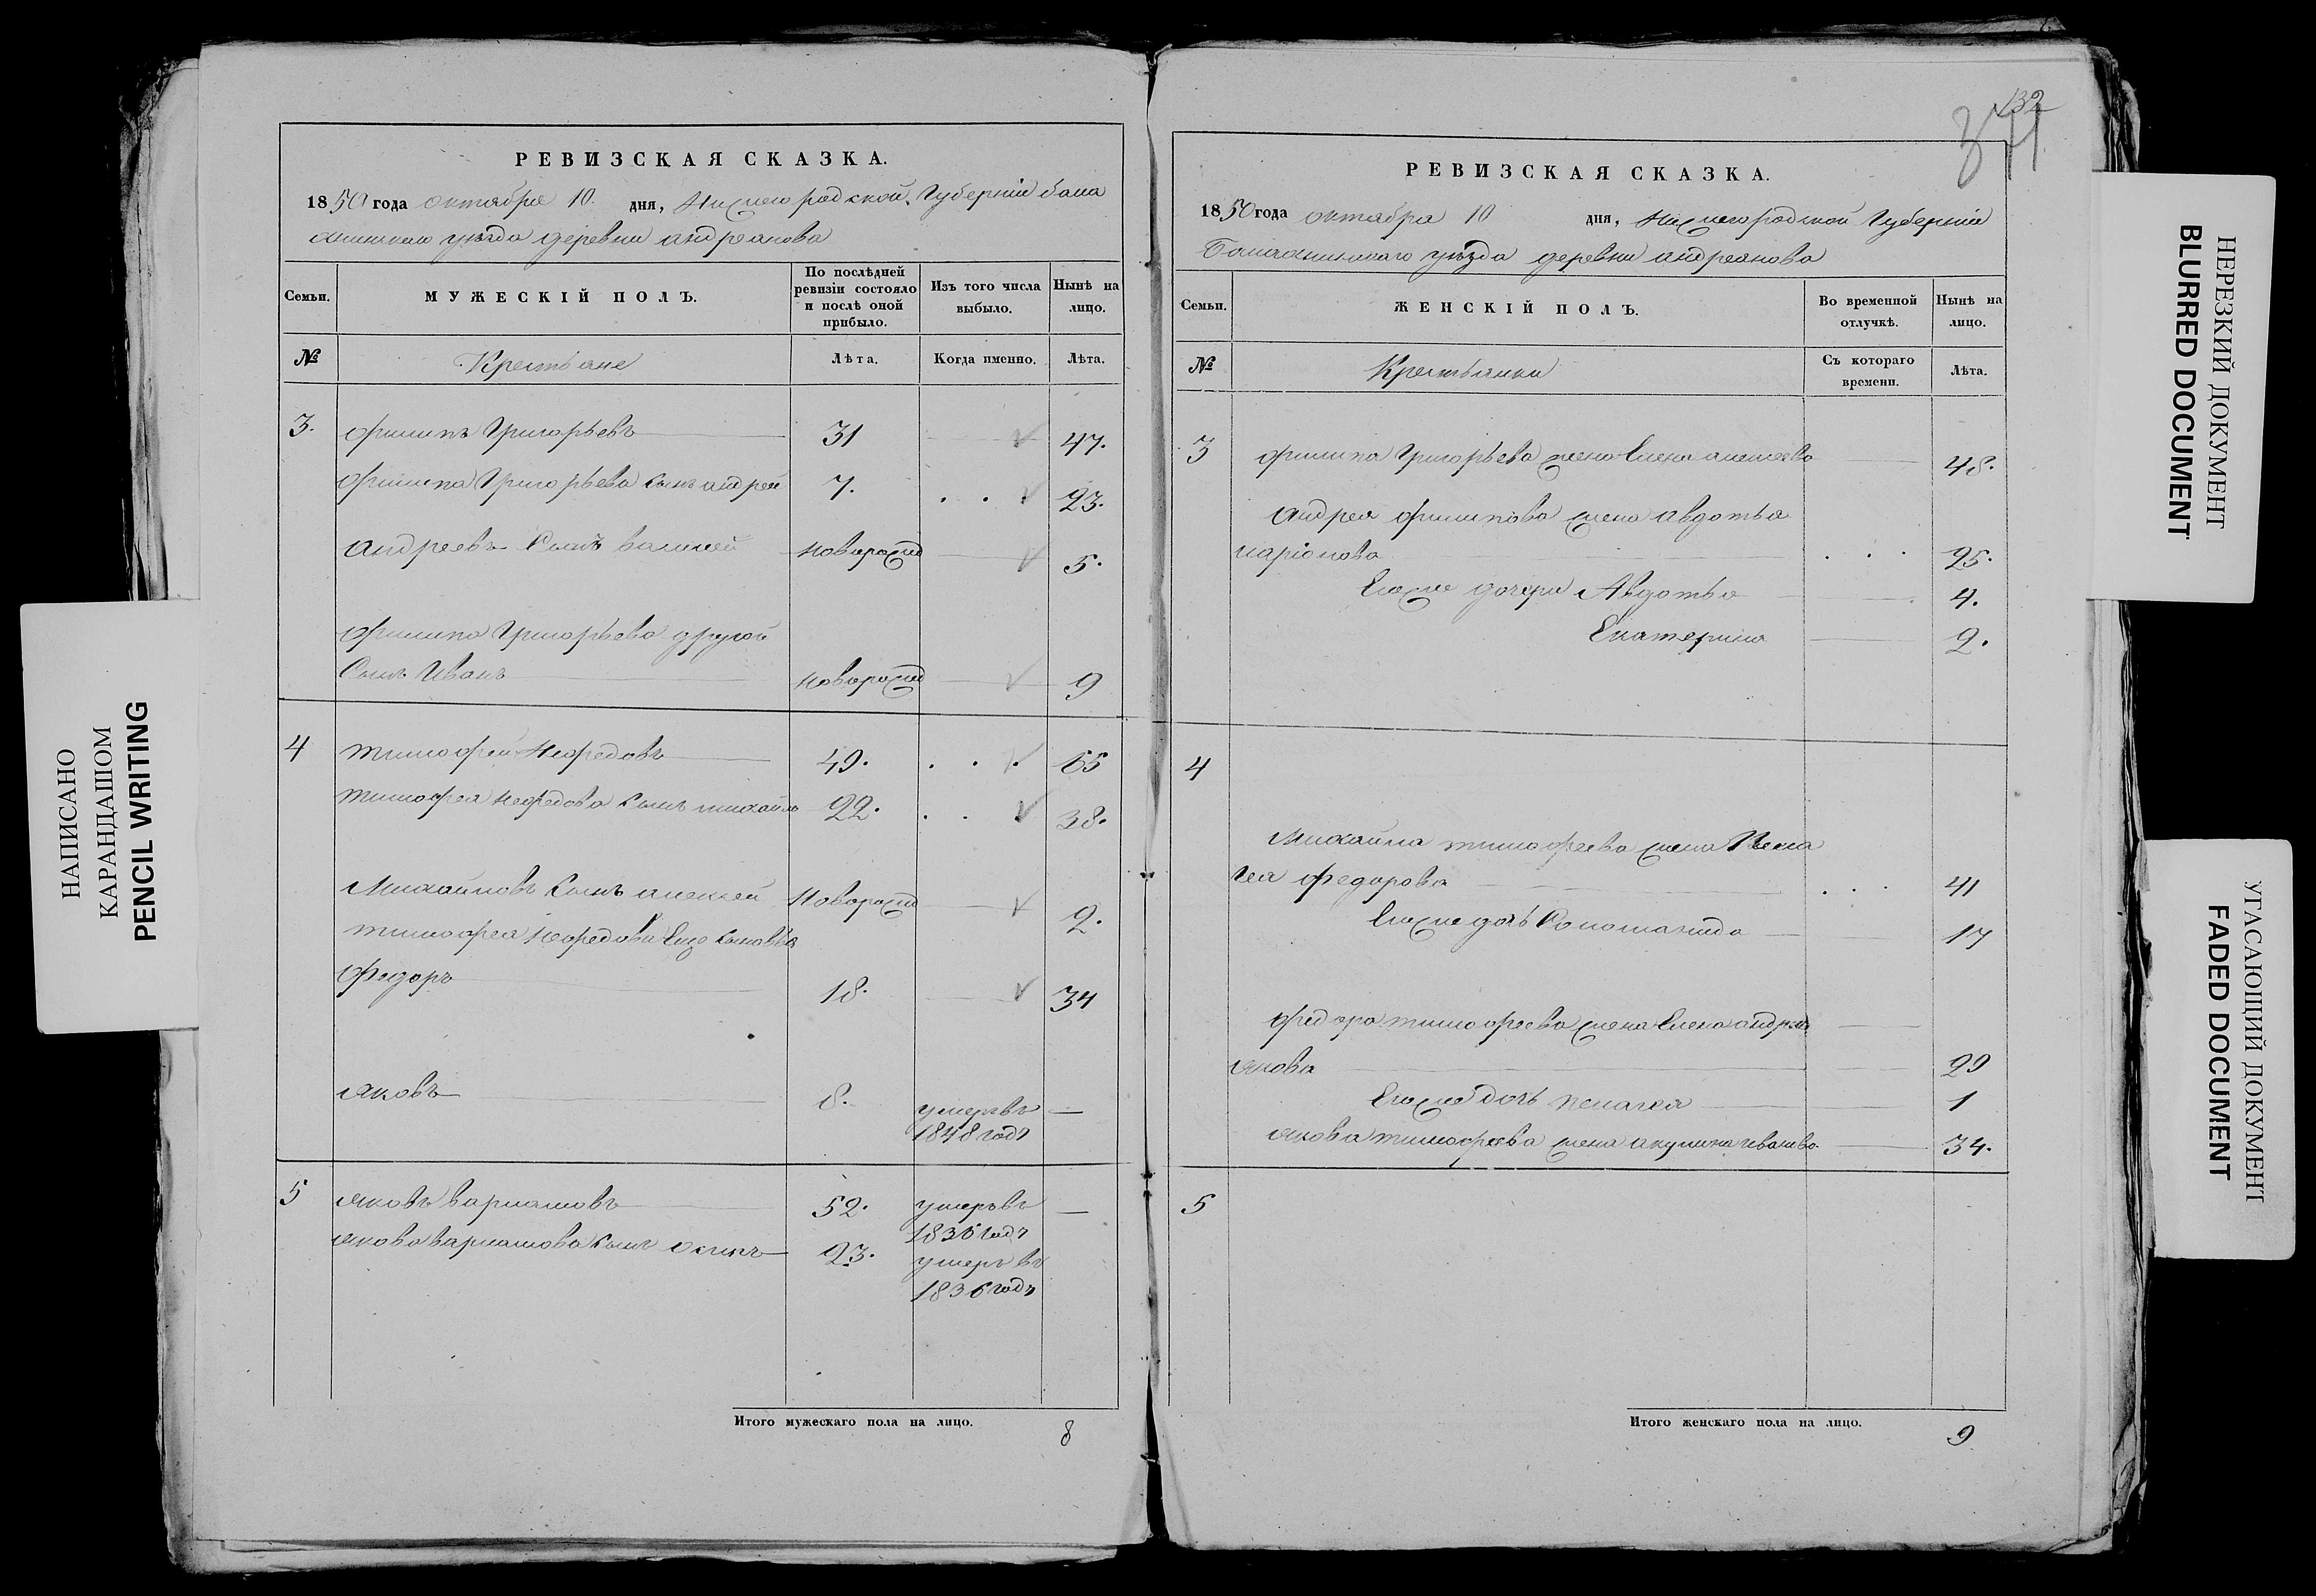 132
3 11
РЕВИЗСКАЯ СКАЗКА.
1850 года октября 10. дня, Нижегородской Губернии Бала
хнинскаго уѣзда деревни андреянова
Семьи.
МУЖЕСКІЙ ПОЛЪ.
По послѣдней ревизіи состояло и послѣ оной прибыло.
Изъ того числа выбыло.
Нынѣ на лицо.
№
Крестьяне
Лѣта.
Когда именно.
Лѣта.
3. филипъ Григорьевъ 31 47.
филипа Григорьева сынъ андрей 7. 23.
андреевъ сынъ василей новорожд 5.
филипа Григорьева другой
сынъ Иванъ новорожд 9
4 тимофей Нефедовъ 49. 65
тимофея нефедова сынъ михайло 22. 38.
Михайловъ сынъ алексей новорожд 2.
тимофея нефедова еще сыновья
Федоръ 18. 34
яковъ 8. умеръ въ —
1848 годѣ
5 яковъ варламовъ 52. умеръ въ —
1836 годѣ
якова варламова сынъ осипъ 23. умеръ въ
1836 годѣ
Итого мужескаго пола на лицо. 8
РЕВИЗСКАЯ СКАЗКА.
1850 года октября 10 дня, Нижегородской Губерніи
Балахнинскаго уѣзда деревни андреянова
Семьи.
ЖЕНСКІЙ ПОЛЪ.
Во временной отлучкѣ.
Нынѣ на лицо.
№
Крестьянки
Съ котораго времени.
Лѣта.
3 филипа Григорьева жена Елена алексеева 48.
андрея филипова жена авдотья
ларіонова 25.
Ихже дочери Авдотья 4.
Екатерина 2.
4
Михайла тимофеева жена Пела
гея федорова 41
Ихже дочь 17
федора тимофеева жена Елена андре
янова 29
Ихже дочь пелагея 1
якова тимофеева жена акулина иванова 34.
5
Итого женскаго пола на лицо. 9
НАПИСАНО
КАРАНДАШОМ
PENCIL WRITING
НЕРЕЗКИЙ ДОКУМЕНТ
BLURRED DOCUMENT
УГАСАЮЩИЙ ДОКУМЕНТ
FADED DOCUMENT